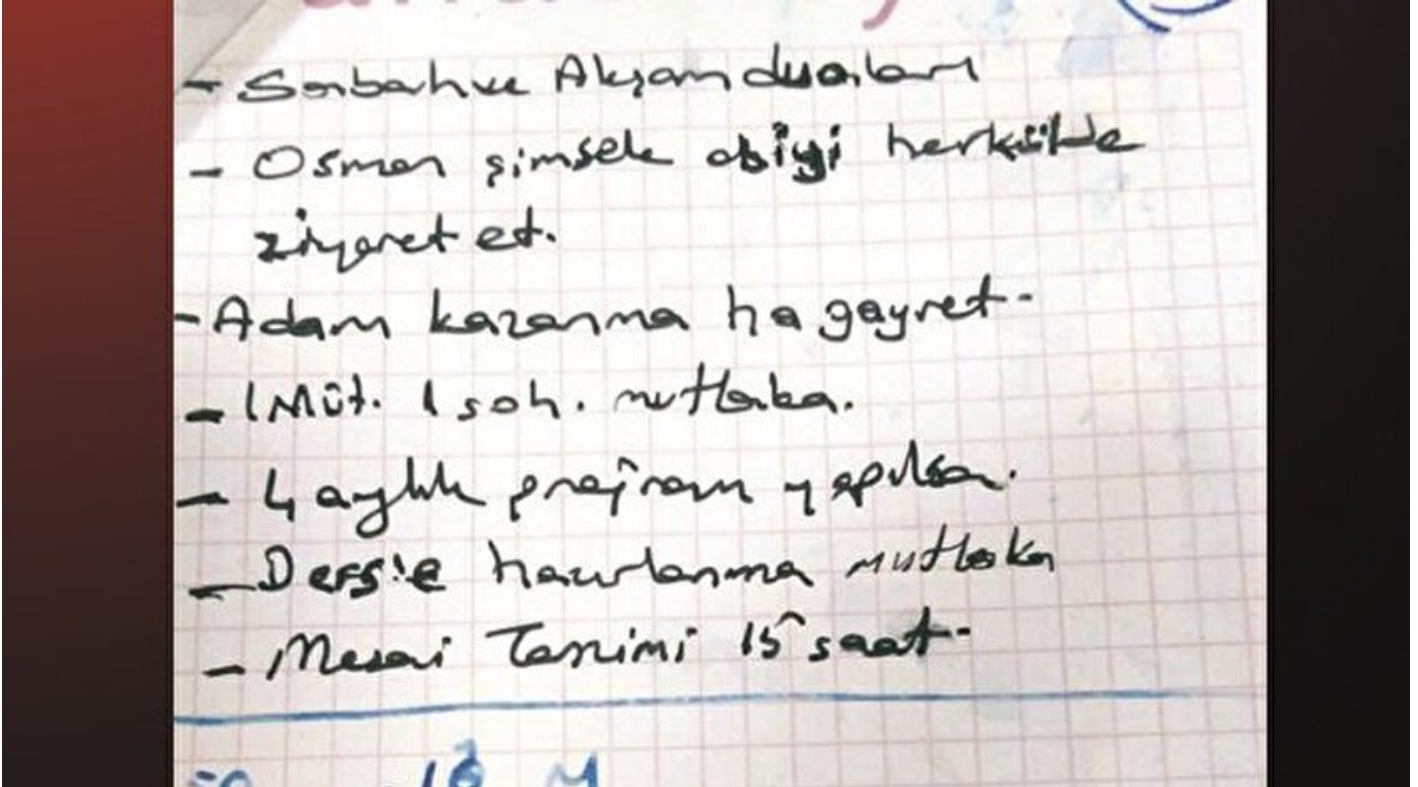 - Sabah ve Akşam duaları
- Osman şimşek abiyi herkülde
ziyaret et.
- Adam kazanma ha gayret.
- 1 Müt. 1 soh. mutlaka.
- 4 aylık program yapılsa.
- Derse hazırlanma mutlaka
- Mesai Tanimi 15 saat.